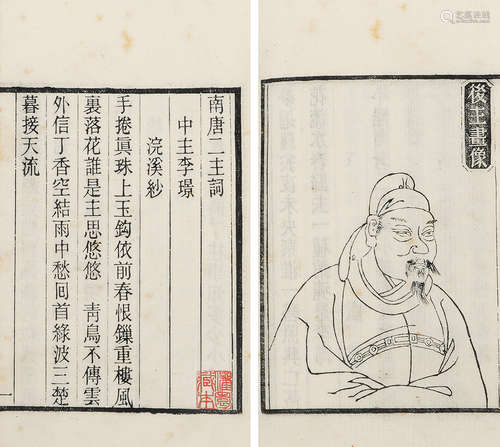 後主畫像
南唐二主詞
中主李璟
浣溪紗
手捲眞珠上玉鈎依前春恨鏁重樓風
裏落花誰是主思悠悠　靑鳥不傳雲
外信丁香空結雨中愁囘首綠波三楚
暮接天流
一